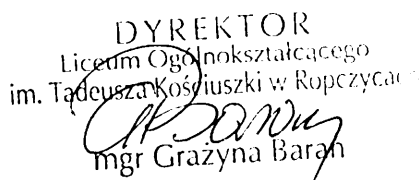 DYREKTOR
Liceum Ogólnokształcącego
im. Tadeusza Kościuszki w Ropczycac
mgr Grażyna Baran